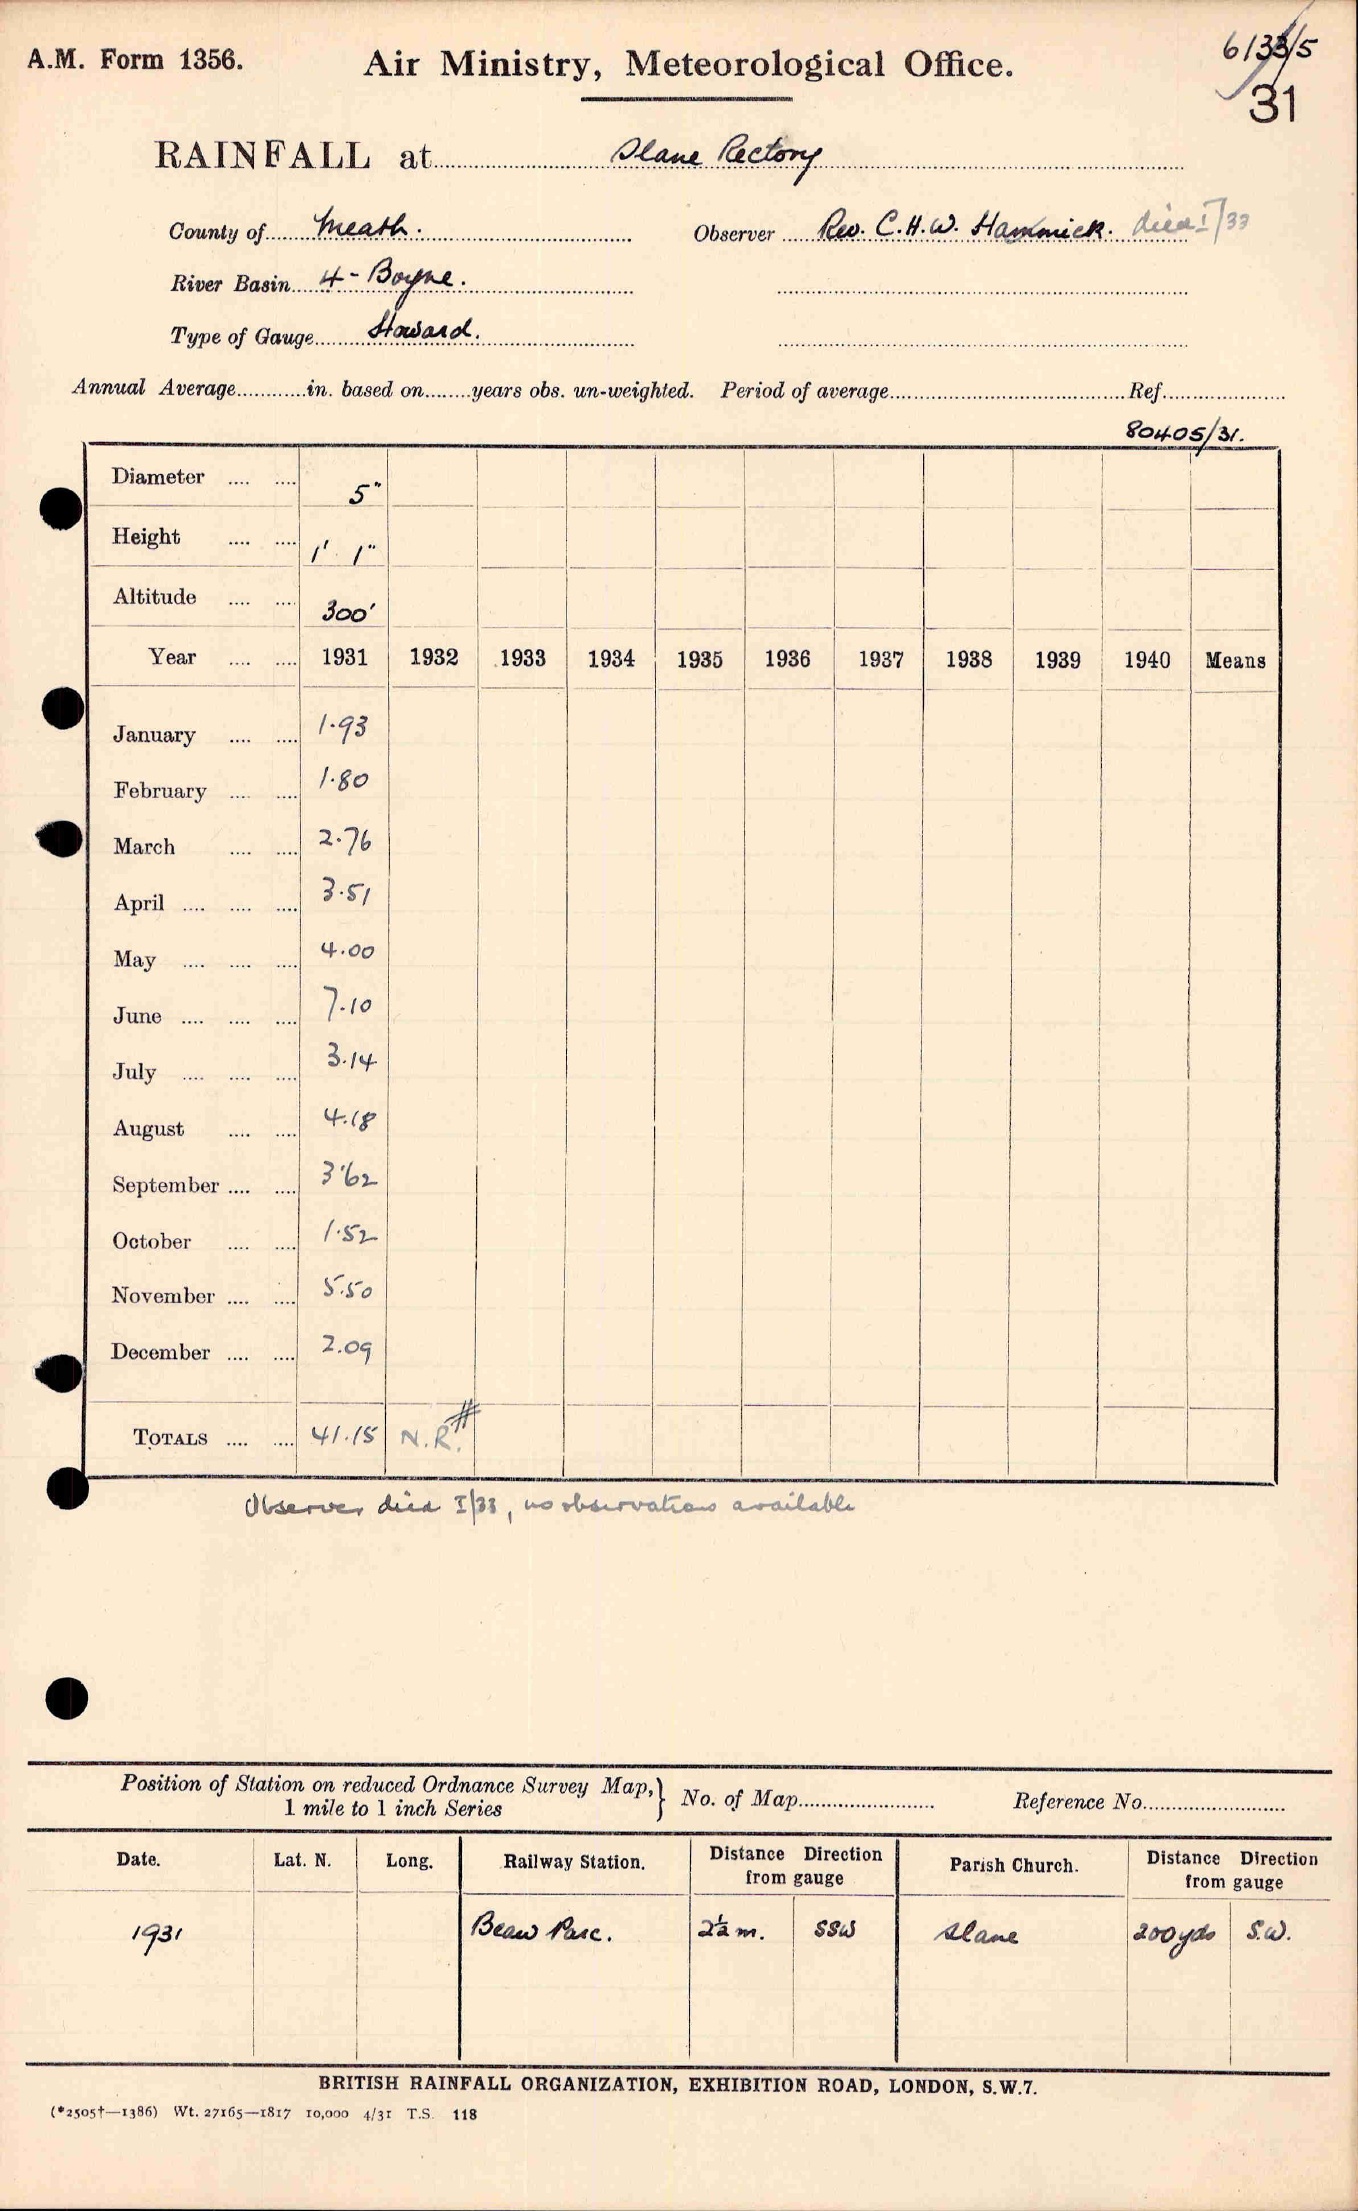 A.M. Form 1356.
Air Ministry, Meteorological Office.
6133/5
31
RAINFALL at Slane Rectory
County of Meath.
Observer Rev. C.H.W. Hammick. died I/33
River Basin 4 - Boyne.
Type of Gauge Howard.
Annual Average............in. based on........years obs. un-weighted. Period of average.................... Ref....................
80405/31.
Diameter .... .... 5"
Height .... .... 1' 1"
Altitude .... .... 300'
Year .... .... 1931 1932 1933 1934 1935 1936 1937 1938 1939 1940 Means
January .... .... 1.93
February .... .... 1.80
March .... .... 2.76
April .... .... .... 3.51
May .... .... .... 4.00
June .... .... .... 7.10
July .... .... .... 3.14
August .... .... 4.18
September .... .... 3.62
October .... .... 1.52
November .... .... 5.50
December .... .... 2.09
TOTALS .... .... 41.15 N.R.#
Observer died I/33, no observations available
Position of Station on reduced Ordnance Survey Map,} No. of Map.................... Reference No....................
1 mile to 1 inch Series
Date. Lat. N. Long. Railway Station. Distance Direction from gauge Parish Church. Distance Direction from gauge
1931 Beau Parc. 2½ m. SSW Slane 200 yds S.W.
BRITISH RAINFALL ORGANIZATION, EXHIBITION ROAD, LONDON, S.W.7.
(*2505†—1386) Wt. 27165—1817 10,000 4/31 T.S. 118